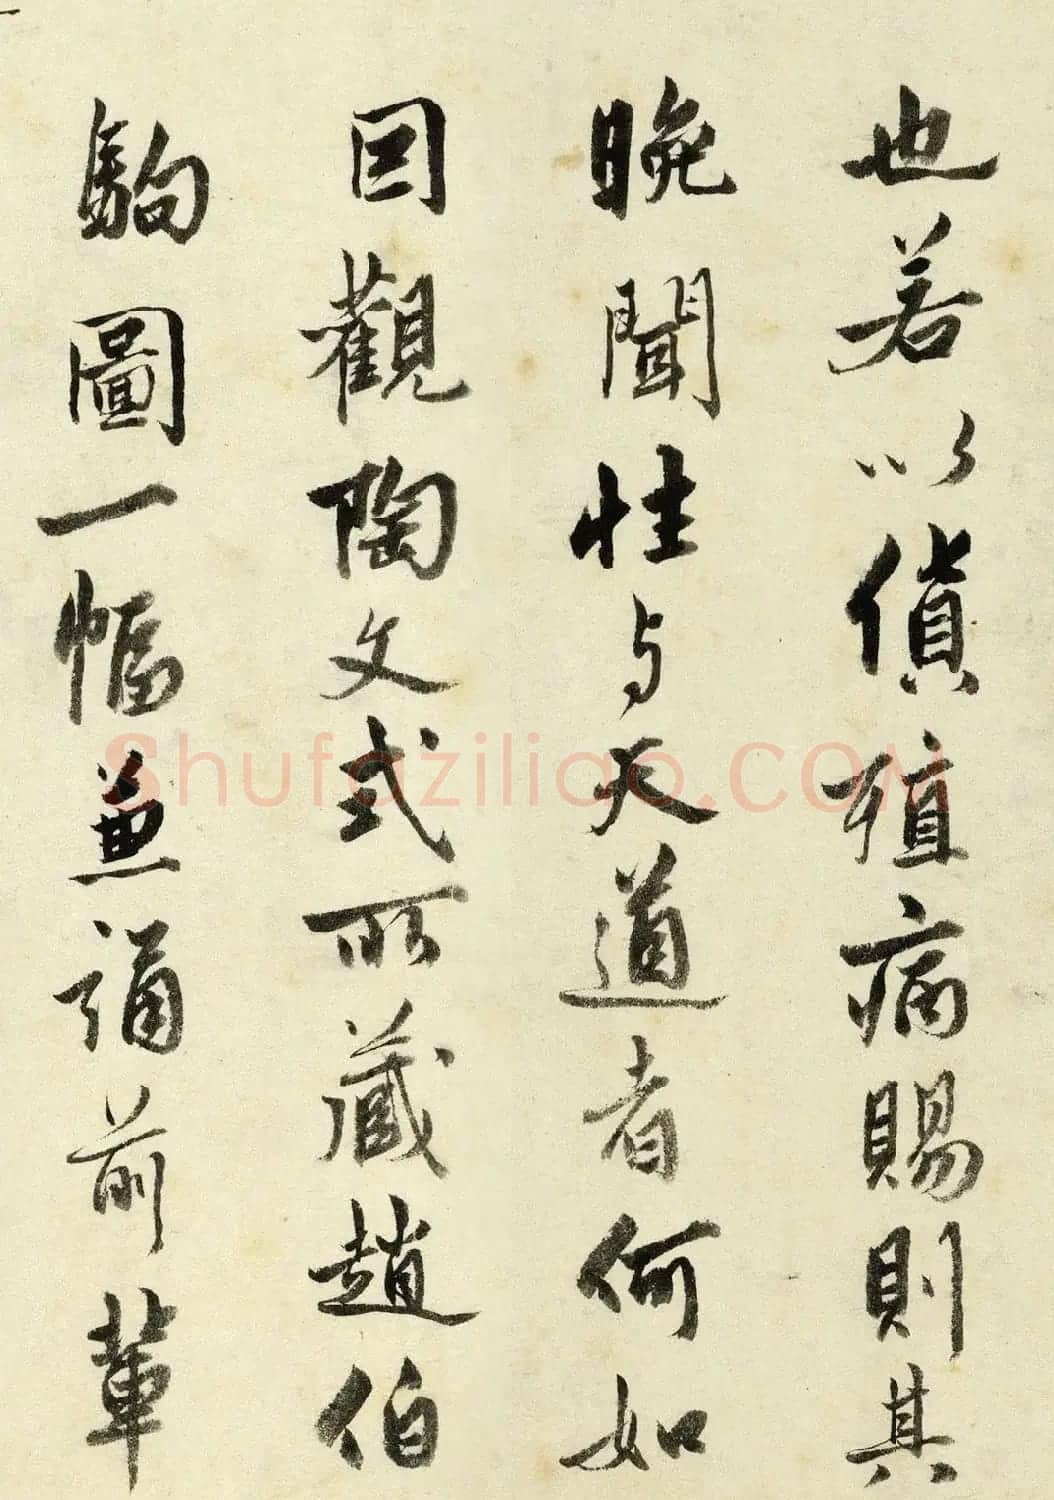 也若以貨殖病賜則其
晚聞性与天道者何如
因觀陶文式所藏趙伯
駒圖一幅兼誦前輩
Shufaziliao.COM